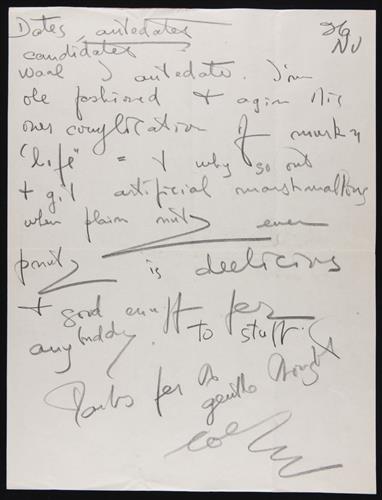 Dates, antedates 26
candidates NV
waal I antedate. I'm
ole fashioned & agin this
over complication of
"life" = & why go out
& git artificial marshmallows
when plain nuts even
pnutz is deelicious
& good enuff fer
anybuddy to stuff.
Thanks for the
gentle thought